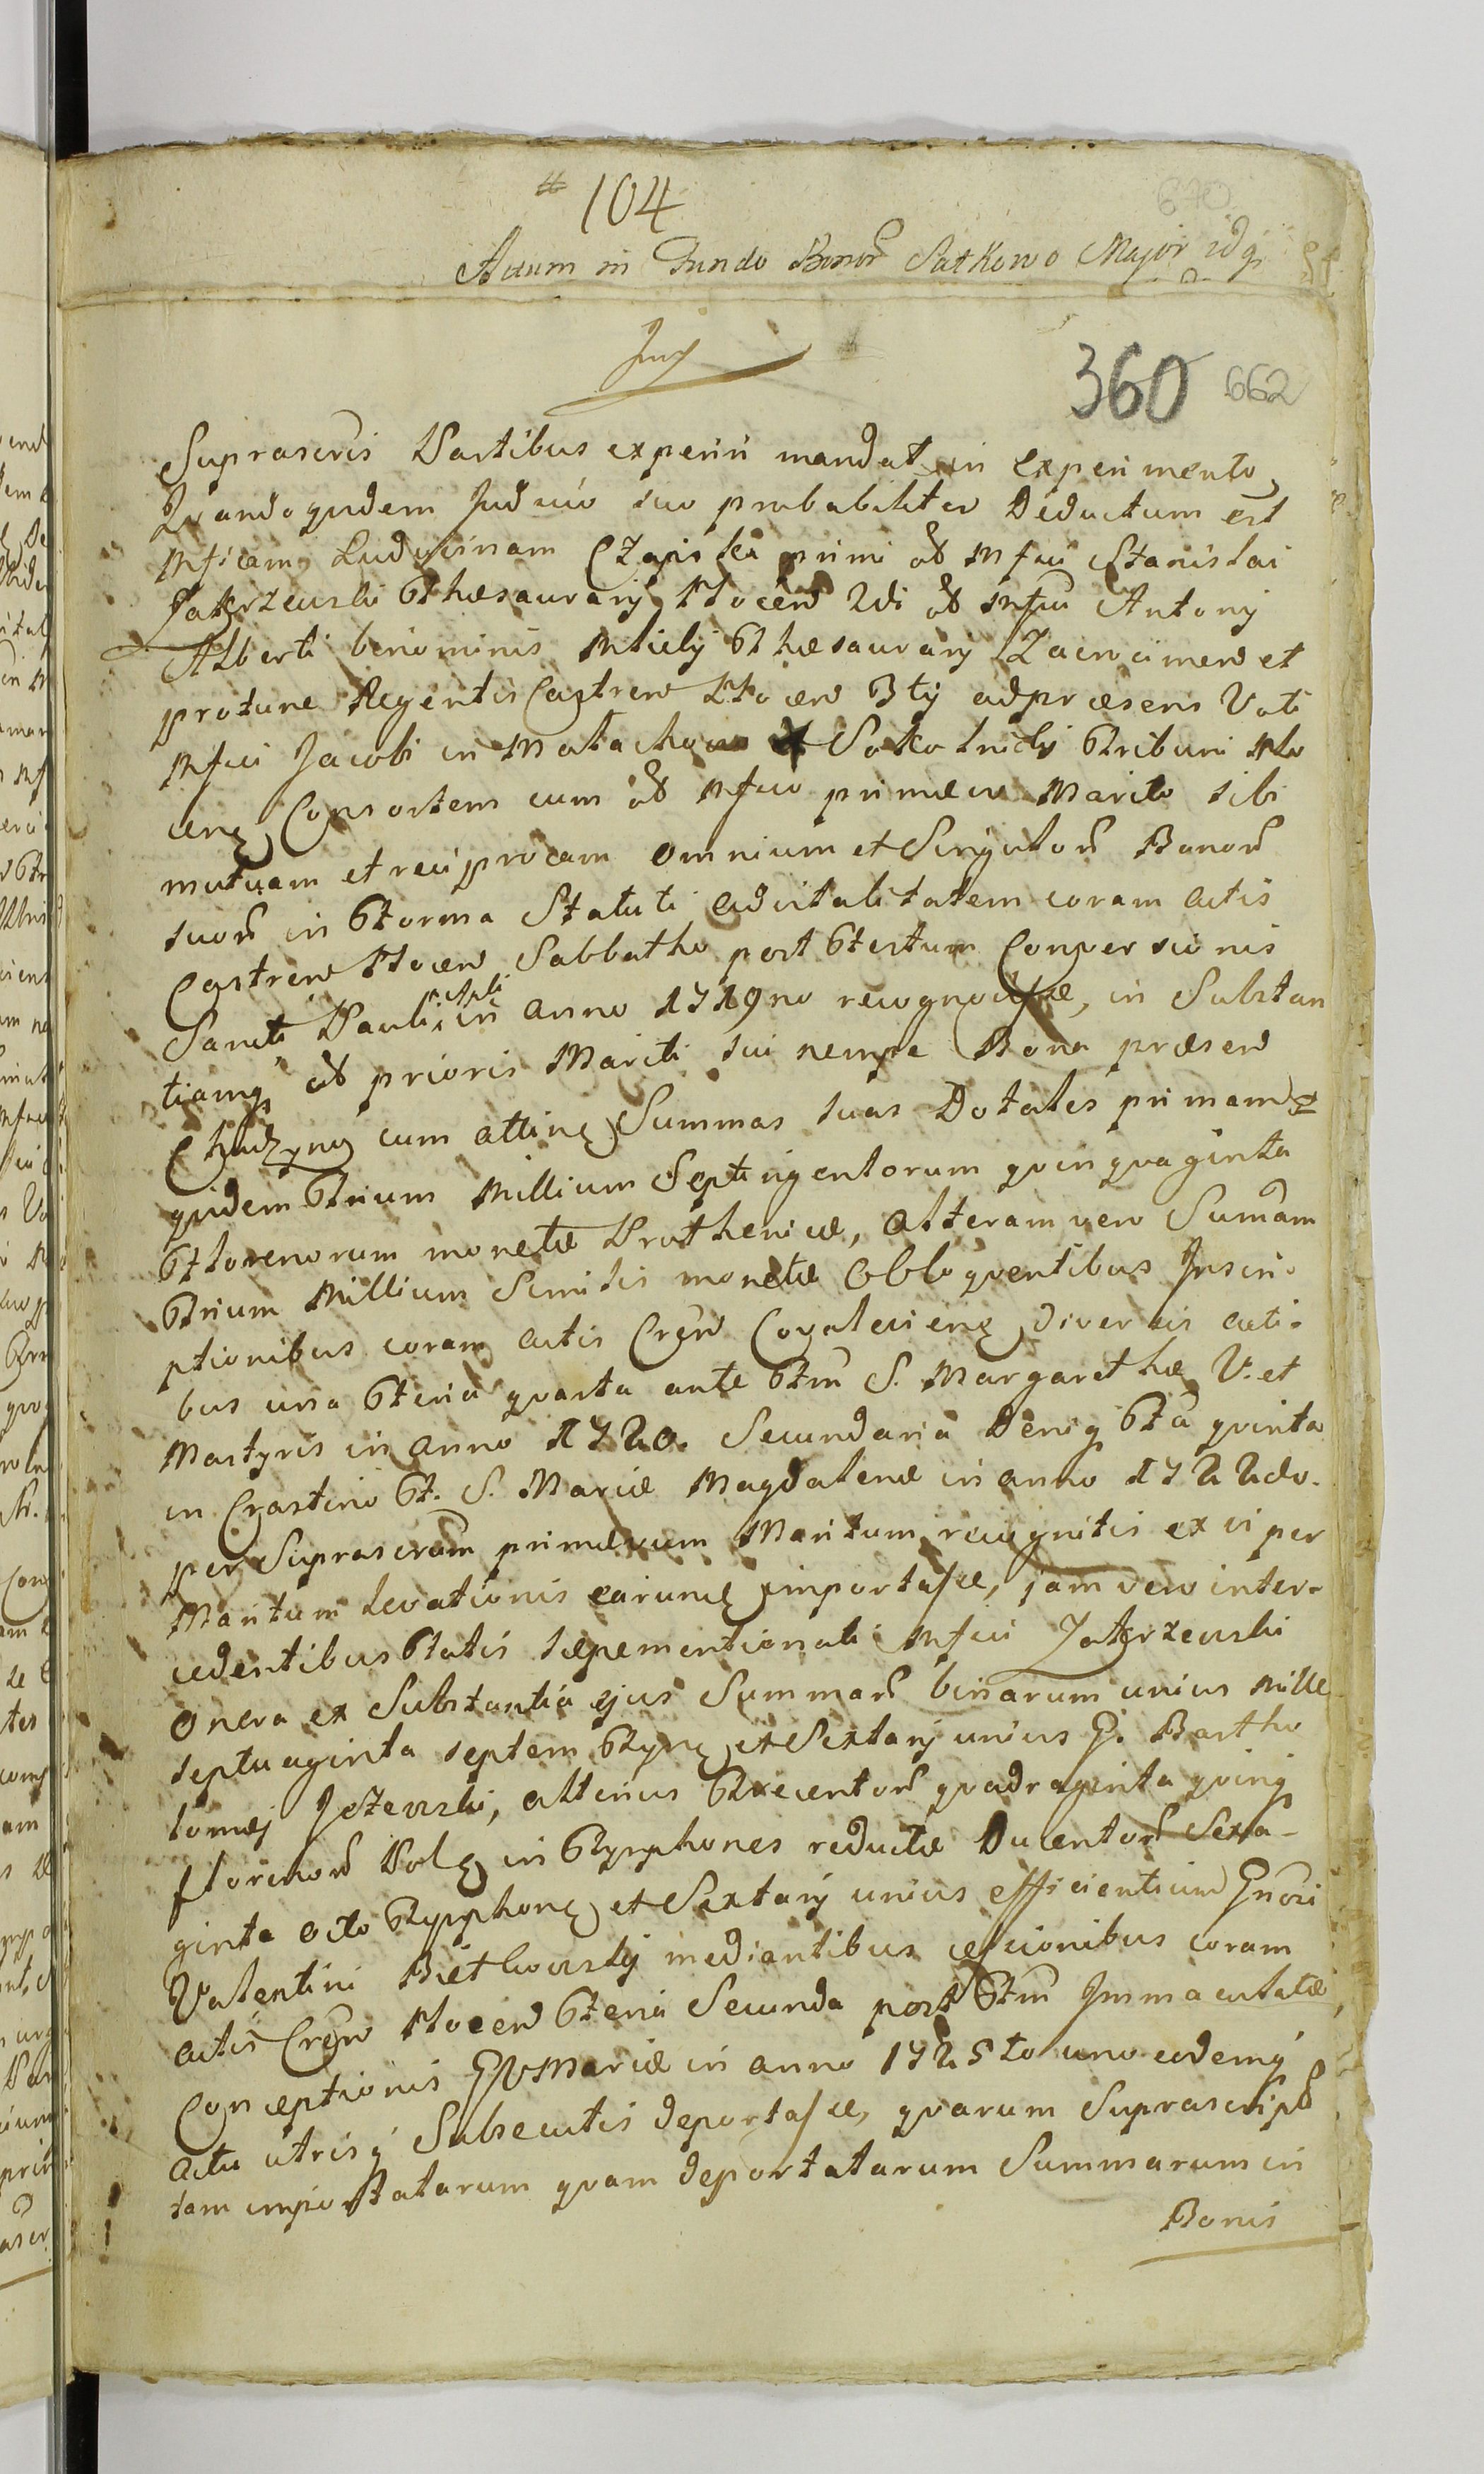 # 104
670
Actum in Fundo Bonor Satkowo Major
360 662
Suprascris Partibus experiri mandat, in experimento,
Quandoquidem Judicio suo probabiliter Deductum est
Mficam Ludovicam Czapski primi ol Mfici Stanislai
Zakrzewski Thesaurarij Plocen 2di ol Mfici Antonij
Alberti binominis Thesaurarij et
protunc Regentis Castren Plocen 3tij adpræsens Voti
Mfici Jacobi in Małachowo Sokolnicki Tribuni Plo
cens Consortem cum ol Mfico primævo Marito sibi
mutuam et reciprocam omnium et Singulor Bonor
suor in Forma Statuti advitalitatem coram actis
Castren Plocen Sabbatho post Festum Conversionis
Sancti Pauli Apli in anno 1719no recognovisse, in Substan
tiamq ol prioris Mariti sui nempe Bona præsen
Chudzyno cum attinen Summas suas Dotales primam
quidem Trium Millium Septingentorum quinquaginta
Florenorum monetæ Pruthenicæ, alteram vero Sumam
Trium Millium Similis monetæ obloquentibus Inscri-
ptionibus coram actis Cren Covalevien diversis acti-
bus una Feria quarta ante Ftm S. Margarethæ V. et
Martyris in anno 1720. Secundaria Feria quinta
in Crastino F. S. Mariæ Magdalenæ in anno 1722do.
per Suprascrum primævum Maritum recognitis ex vi per
Maritum levationis earund importasse, jam vero inter-
cedentibus Fatis sæpementionati Mfici Zakrzewski
onera ex Substantia ejus Summar binarum unius Mille
septuaginta septem Tynf et Sextarij unius G. Bartho
lomæj Jeżewski, alterius Trecentor quadraginta quinq
florenor Pol in Tymphones reductæ Ducentor Sexa-
ginta octo Tymphon et Sextarij unius efficientium Gnosi
Valentini mediantibus cessionibus coram
actis Cren Plocen Feria Secunda post Ftm Immaculatæ
Conceptionis BVMariæ in anno 1725to uno eodemq
actu utrisq Subsecutis deportasse, quarum Suprascript
tam importatarum quam deportatarum Summarum in
Bonis